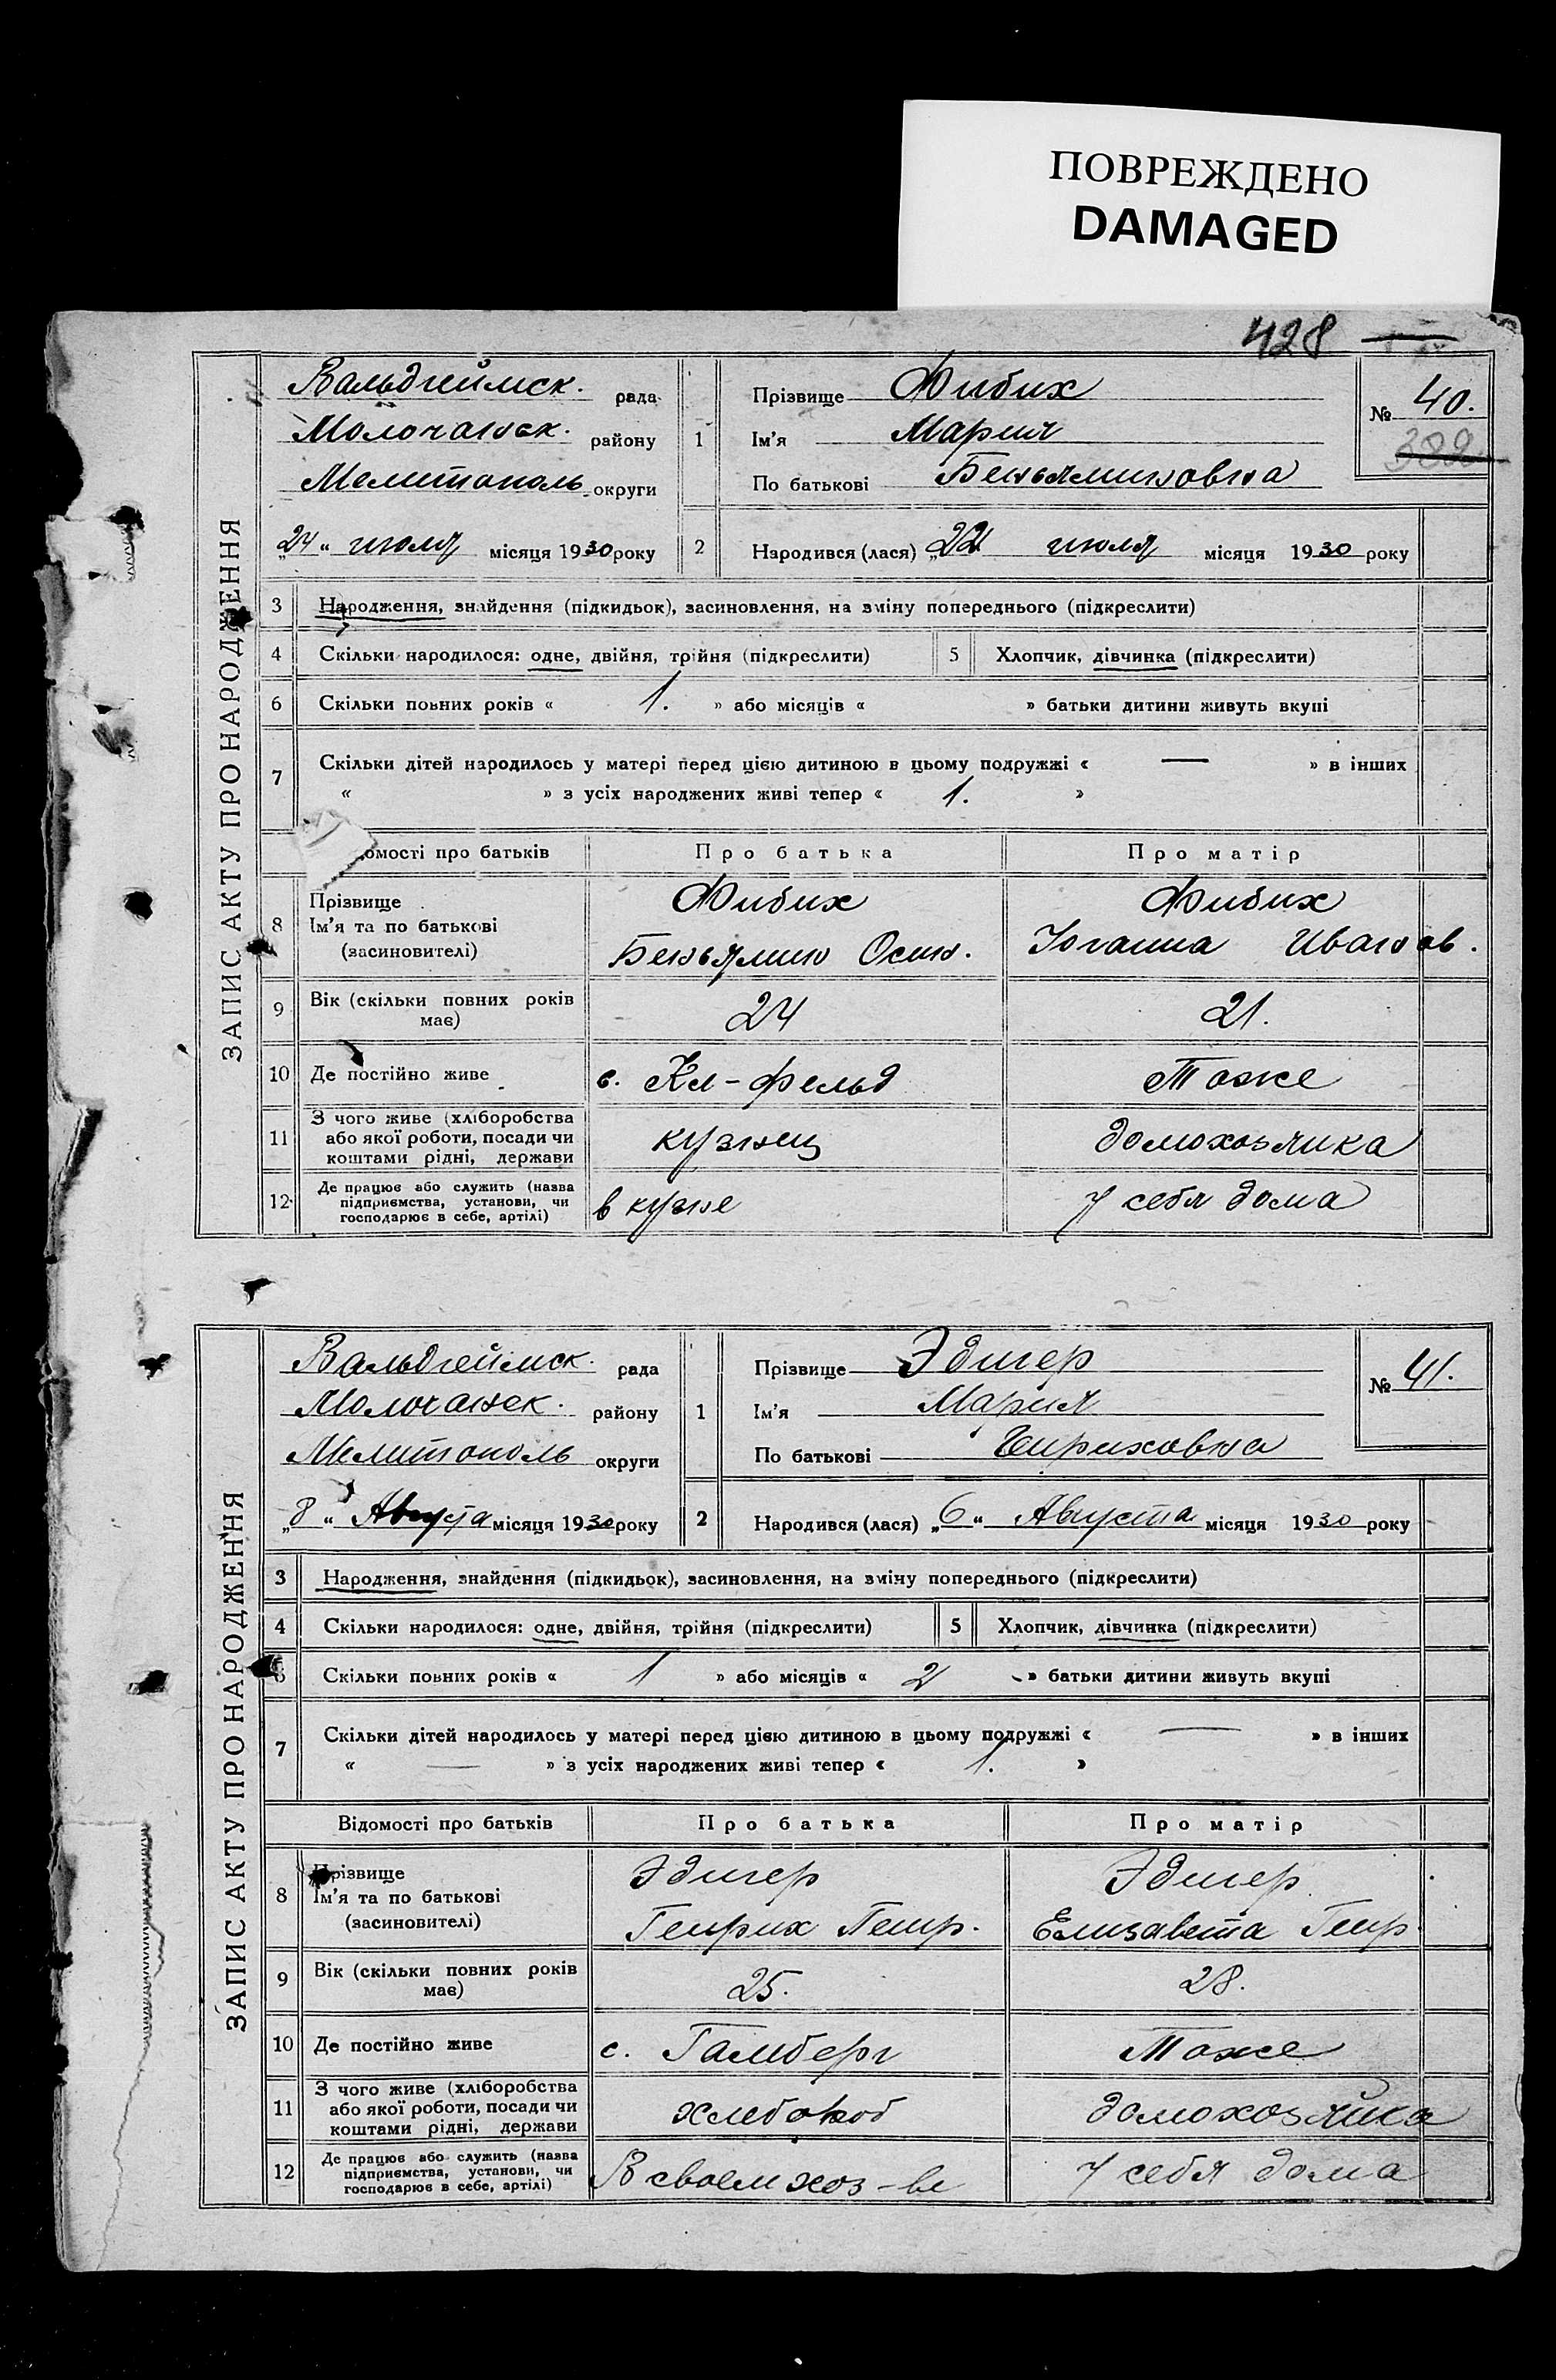 ПОВРЕЖДЕНО
DAMAGED
428
ЗАПИС АКТУ ПРО НАРОДЖЕННЯ
Вальдгеймск. рада
Молочанск. району
Мелитополь округи
„24“ июля місяця 1930 року
1
Прізвище Фибих
Ім'я Мария
По батькові Беньяминовна
№ 40.
388
2 Народився (лася) „22 июля місяця 1930 року
3 Народження, знайдення (підкидьок), засиновлення, на зміну попереднього (підкреслити)
4 Скільки народилося: одне, двійня, трійня (підкреслити) 5 Хлопчик, дівчинка (підкреслити)
6 Скільки повних років « 1. » або місяців « » батьки дитини живуть вкупі
7 Скільки дітей народилось у матері перед цією дитиною в цьому подружжі « — » в інших
« » з усіх народжених живі тепер « 1. »
омості про батьків Про батька Про матір
8 Прізвище Фибих Фибих
Ім'я та по батькові
(засиновителі) Беньямин Осип. Иоганна Иванов.
9 Вік (скільки повних років
має) 24 21.
10 Де постійно живе с. Кл-фельд Тоже
11 З чого живе (хліборобства
або якої роботи, посади чи
коштами рідні, держави кузнец домохозяйка
12 Де працює або служить (назва
підприємства, установи, чи
господарює в себе, артілі) в кузне У себя дома
ЗАПИС АКТУ ПРО НАРОДЖЕННЯ
Вальдгеймск. рада
Молочанск. району
Мелитополь округи
„8“ Августа місяця 1930 року
1
Прізвище Эдигер
Ім'я Мария
По батькові Генриховна
№ 41.
2 Народився (лася) „6“ Августа місяця 1930 року
3 Народження, знайдення (підкидьок), засиновлення, на зміну попереднього (підкреслити)
4 Скільки народилося: одне, двійня, трійня (підкреслити) 5 Хлопчик, дівчинка (підкреслити)
6 Скільки повних років « 1 » або місяців « 2 » батьки дитини живуть вкупі
7 Скільки дітей народилось у матері перед цією дитиною в цьому подружжі « — » в інших
« — » з усіх народжених живі тепер « 1. »
Відомості про батьків Про батька Про матір
8 Прізвище Эдигер Эдигер
Ім'я та по батькові
(засиновителі) Генрих Петр. Елизавета Генр.
9 Вік (скільки повних років
має) 25. 28.
10 Де постійно живе с. Гамберг Тоже
11 З чого живе (хліборобства
або якої роботи, посади чи
коштами рідні, держави хлебороб домохозяйка
12 Де працює або служить (назва
підприємства, установи, чи
господарює в себе, артілі) В своем хоз-ве У себя дома